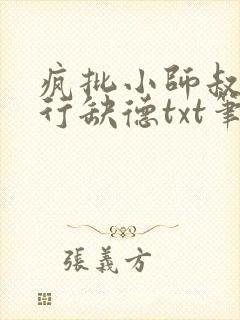 疯批小師叔
行缺德txt筆
張義方